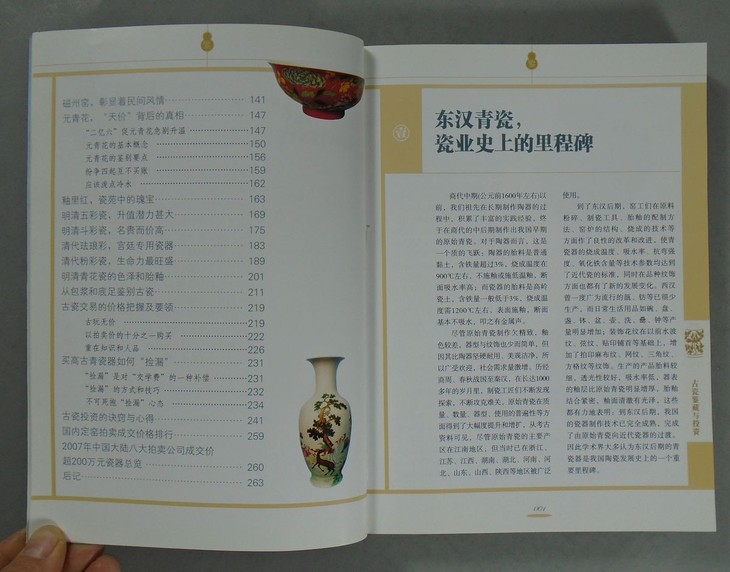 磁州窑，彰显着民间风情 141
元青花，“天价”背后的真相 147
“二亿六”促元青花急剧升温 147
元青花的基本概念 150
元青花的鉴别要点 156
纷争四起互不买账 159
应该泼点冷水 162
釉里红，瓷苑中的瑰宝 163
明清五彩瓷，升值潜力甚大 169
明清斗彩瓷，名贵而价高 175
清代珐琅彩，宫廷专用瓷器 183
清代粉彩瓷，生命力最旺盛 189
明清青花瓷的色泽和胎釉 201
从包浆和底足鉴别古瓷 211
古瓷交易的价格把握及要领 219
古玩无价 219
以拍卖价的十分之一购买 222
重在知识和人品 226
买高古青瓷器如何“捡漏” 231
“捡漏”是对“交学费”的一种补偿 231
“捡漏”的方式和技巧 232
不可死抱“捡漏”心态 234
古瓷投资的诀窍与心得 241
国内定窑拍卖成交价格排行 259
2007年中国大陆八大拍卖公司成交价
超200万元瓷器总览 260
后记 263
壹
东汉青瓷，
瓷业史上的里程碑
商代中期(公元前1600年左右)以
前，我们祖先在长期制作陶器的过
程中，积累了丰富的实践经验，终
于在商代的中后期制作出我国早期
的原始青瓷。对于陶器而言，这是
一个质的飞跃：陶器的胎料是普通
黏土，含铁量超过3%，烧成温度在
900℃左右，不施釉或施低温釉，断
面吸水率高；而瓷器的胎料是高岭
瓷土，含铁量一般低于3%，烧成温
度需1200℃左右，表面施釉，断面
基本不吸水，叩之有金属声。
尽管原始青瓷制作欠精致，釉
色较差，器型与纹饰也少而简单，但
因其比陶器坚硬耐用、美观洁净，所
以广受欢迎，社会需求量激增，历经
商周、春秋战国至秦汉，在长达1000
多年的岁月里，制瓷工匠们不断发现
探索、不断攻克难关，原始青瓷在质
量、数量、器型、使用的普遍性等方
面得到了大幅度提升和增扩。从考古
资料可见，尽管原始青瓷的主要产
区在江南地区，但当时已在浙江、
江苏、江西、湖南、湖北、河南、河
北、山东、山西、陕西等地区被广泛
使用。
到了东汉后期，窑工们在原料
粉碎、制瓷工具、胎釉的配制方
法、窑炉的结构、烧成的技术等
方面作了良性的改革和改进，使青
瓷器的烧成温度、吸水率、抗弯强
度、氧化铁含量等技术参数均达到
了近代瓷的标准，同时在品种纹饰
方面也都有了新的发展变化。西汉
曾一度广为流行的瓿、钫等已很少
生产，而日常生活用品如碗、盘、
盏、钵、盆、壶、洗、罍、钟等产
量明显增加；装饰花纹在以前水波
纹、弦纹、贴印铺首等基础上，增
加了拍印麻布纹、网纹、三角纹、
方格纹等纹饰。生产的产品胎料较
细，透光性较好，吸水率低，器表
的釉层比原始青瓷明显增厚，胎釉
结合紧密，釉面清澈有光泽，这些
都有力地表明：到东汉后期，我国
的瓷器制作技术已完全成熟，完成
了由原始青瓷向近代瓷器的过渡。
因此学术界大多认为东汉后期的青
瓷器是我国陶瓷发展史上的一个重
要里程碑。
古瓷鉴藏与投资
001